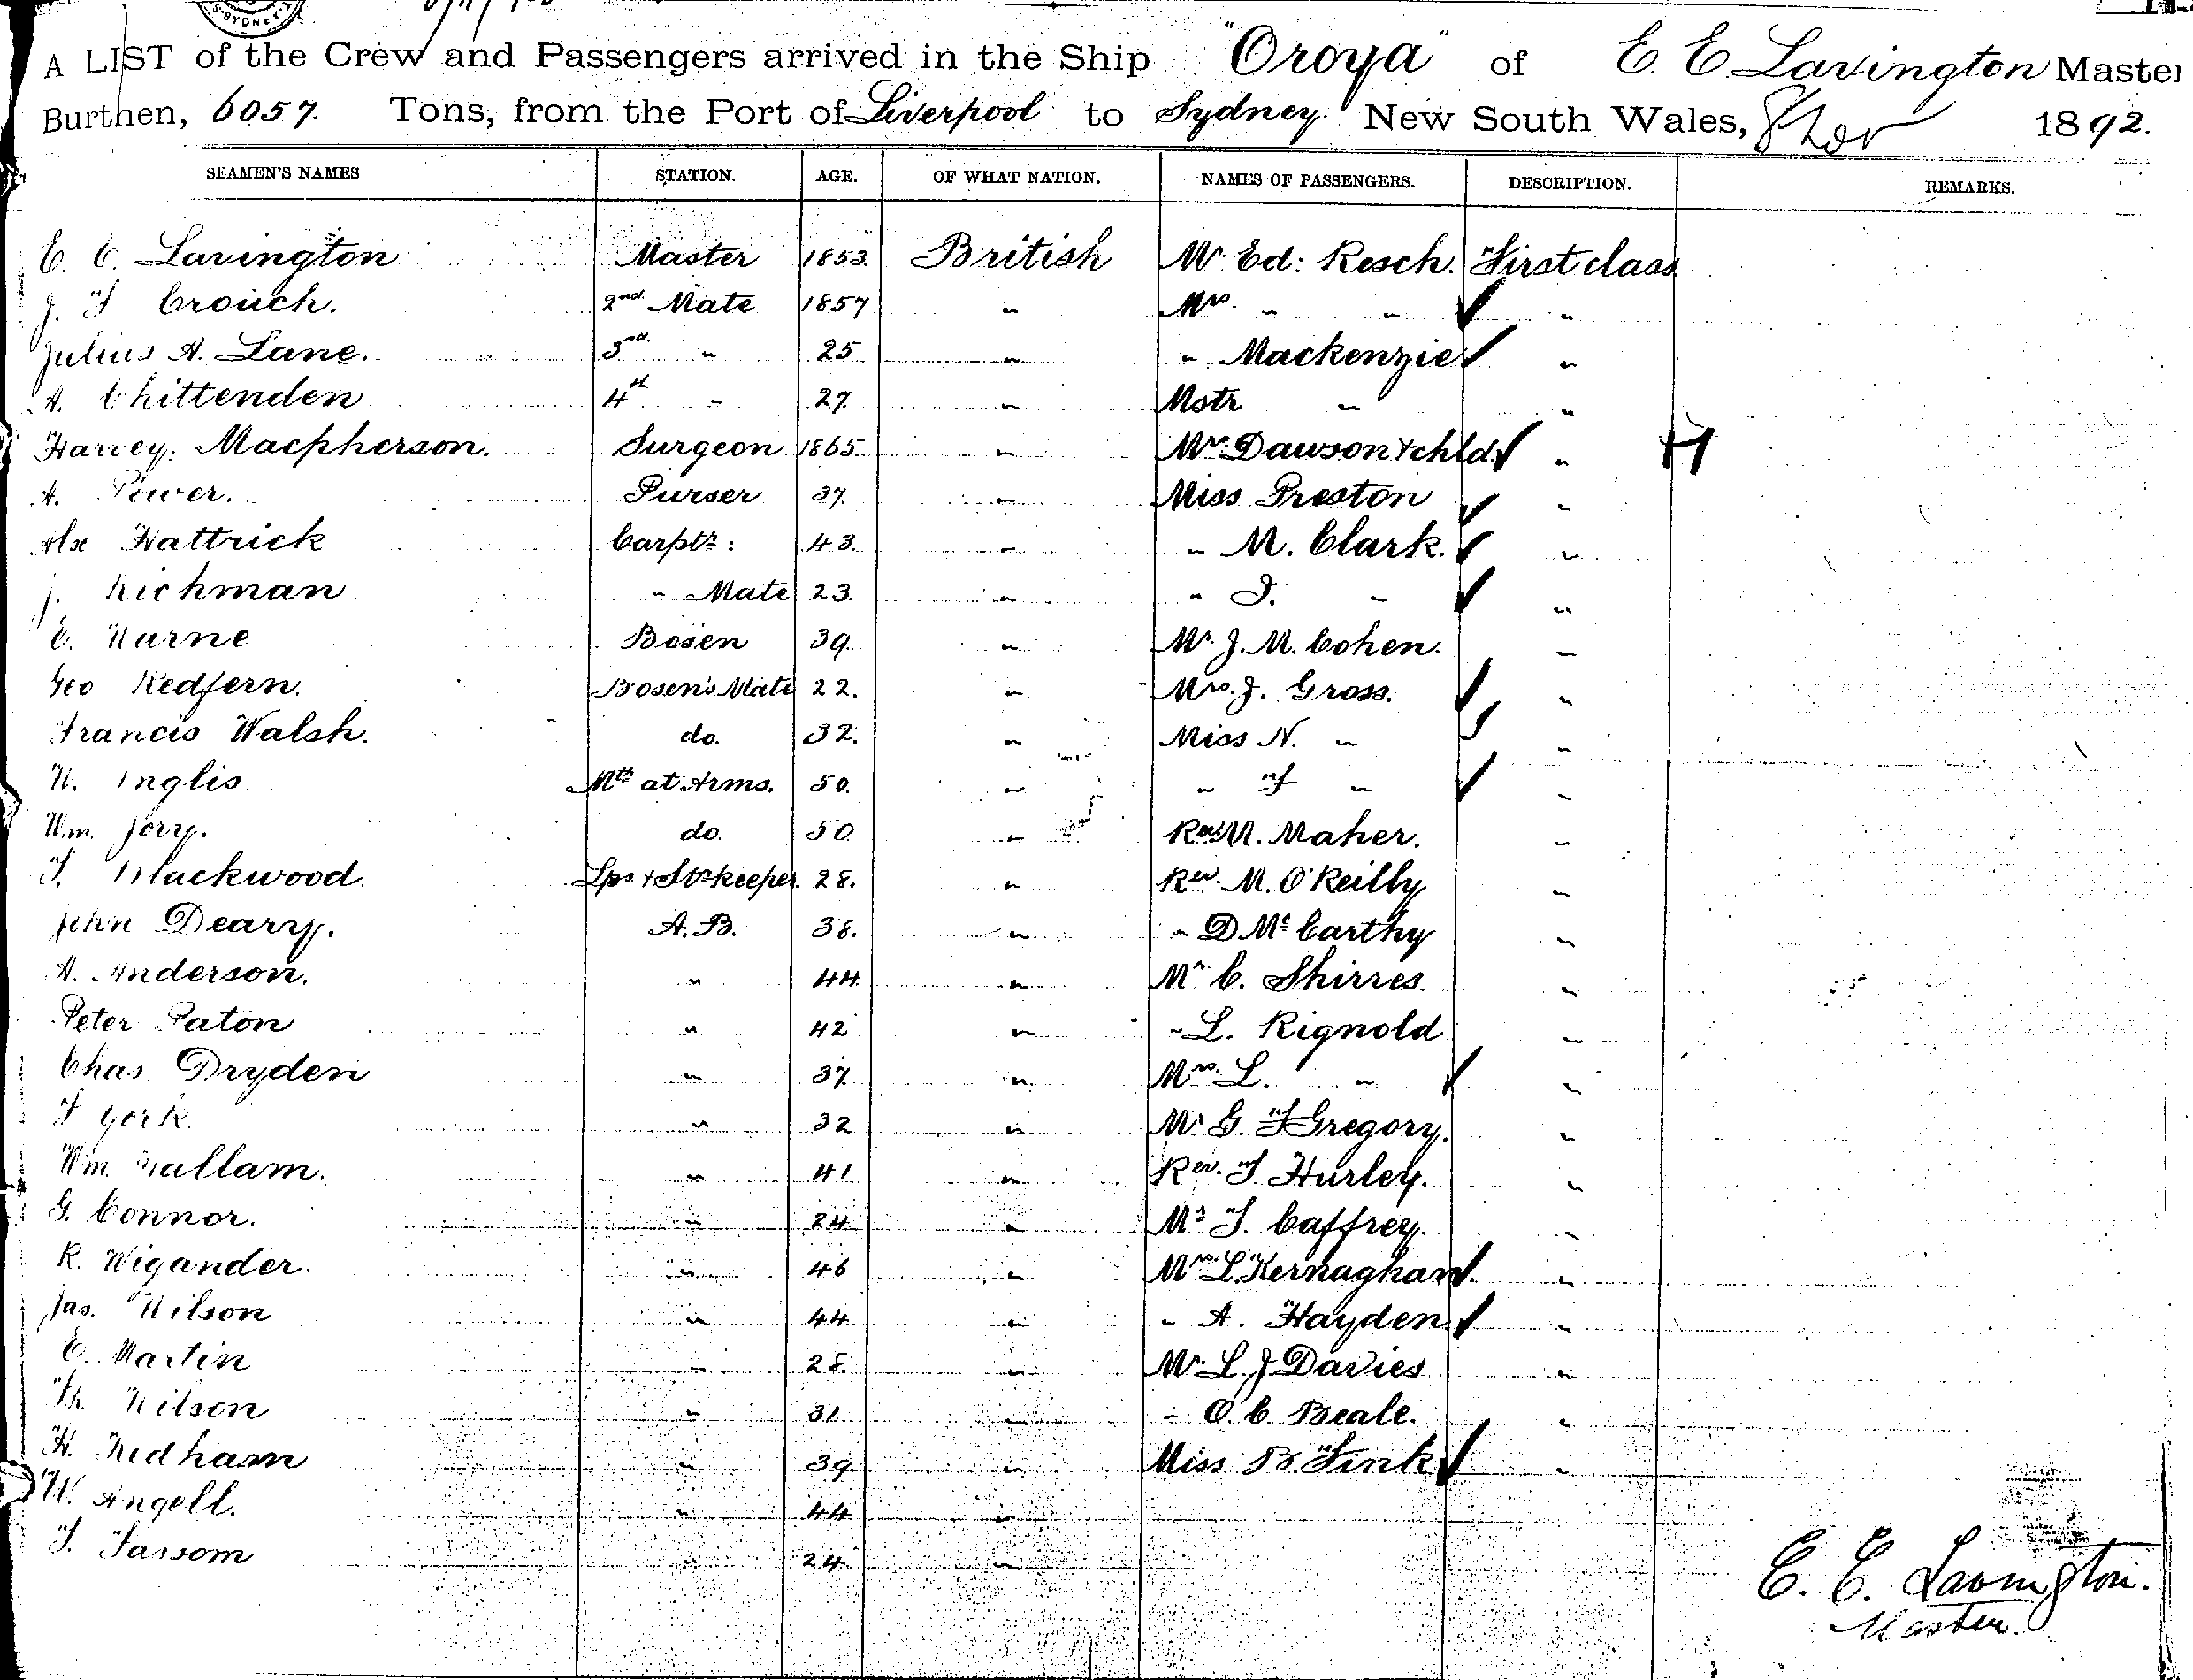 SYDNEY
A LIST of the Crew and Passengers arrived in the Ship "Oroya" of E. E. Lavington Master
Burthen, 6057. Tons, from the Port of Liverpool to Sydney. New South Wales, 1892.
SEAMEN'S NAMES STATION. AGE. OF WHAT NATION. NAMES OF PASSENGERS. DESCRIPTION. REMARKS.
E. E. Lavington Master 1853. British Mr. Ed: Resch. First class
J. F Crouch. 2nd. Mate 1857 " Mrs. " " "
Julius A. Lane. 3rd. " 25 " " Mackenzie "
A. Chittenden 4th " 27. " Mstr " "
Harvey. Macpherson. Surgeon 1865 " Mrs. Dawson & chld. " H
A. Power. Purser 37. " Miss Preston "
Alx Hattrick Carptr: 43. " " M. Clark. "
J. Richman " Mate 23. " " I. " "
E. Bosen 39. " Mr. J. M. Cohen. "
Geo Redfern. Bosen's Mate 22. " Mrs. J. Gross. "
Francis Walsh. do. 32. " Miss N. " "
W. Inglis. Mtr at Arms. 50. " " F " "
Wm. Jory. do. 50 " Rev M. Maher. "
T. Blackwood. Lps & Strkeeper. 28. " Rev. M. O'Reilly "
John Deary. A.B. 38. " " D McCarthy "
A. Anderson. " 44. " Mr. C. Shirres. "
Peter Paton " 42 " " L. Rignold "
Chas. Dryden " 37. " Mrs. L. " "
F York. " 32 " Mr G. F Gregory. "
Wm. Hallam. " 41 " Rev. T. Hurley. "
G. Connor. " 24 " Mr T. Caffrey. "
R. Wigander. " 46 " Mrs. L. Kernaghan. "
Jas. Wilson " 44. " " A. Hayden. "
E. Martin " 28. " Mr. L. J Davies "
Th. Wilson " 31 " " O. C. Beale. "
H. Redham " 39 " Miss B. Fink "
W. Angell. " 44 "
T. " 24. "
E. E. Lavington.
Master.